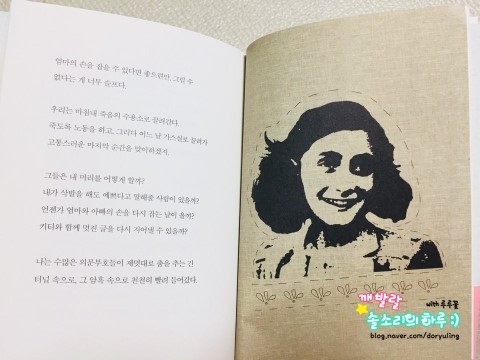 엄마의 손을 잡을 수 있다면 좋으련만, 그럴 수
없다는 게 너무 슬프다.
우리는 마침내 죽음의 수용소로 끌려간다.
죽도록 노동을 하고, 그러다 어느 날 가스실로 끌려가
고통스러운 마지막 순간을 맞이하겠지.
그들은 내 머리를 어떻게 할까?
내가 삭발을 해도 예쁘다고 말해줄 사람이 있을까?
언젠가 엄마와 아빠의 손을 다시 잡는 날이 올까?
키티와 함께 멋진 글을 다시 지어낼 수 있을까?
나는 수많은 의문부호들이 제멋대로 춤을 추는 긴
터널 속으로, 그 암흑 속으로 천천히 빨려 들어갔다.
깨발랄 with 루루꼴
솔소리의 하루 :)
blog.naver.com/doryuling